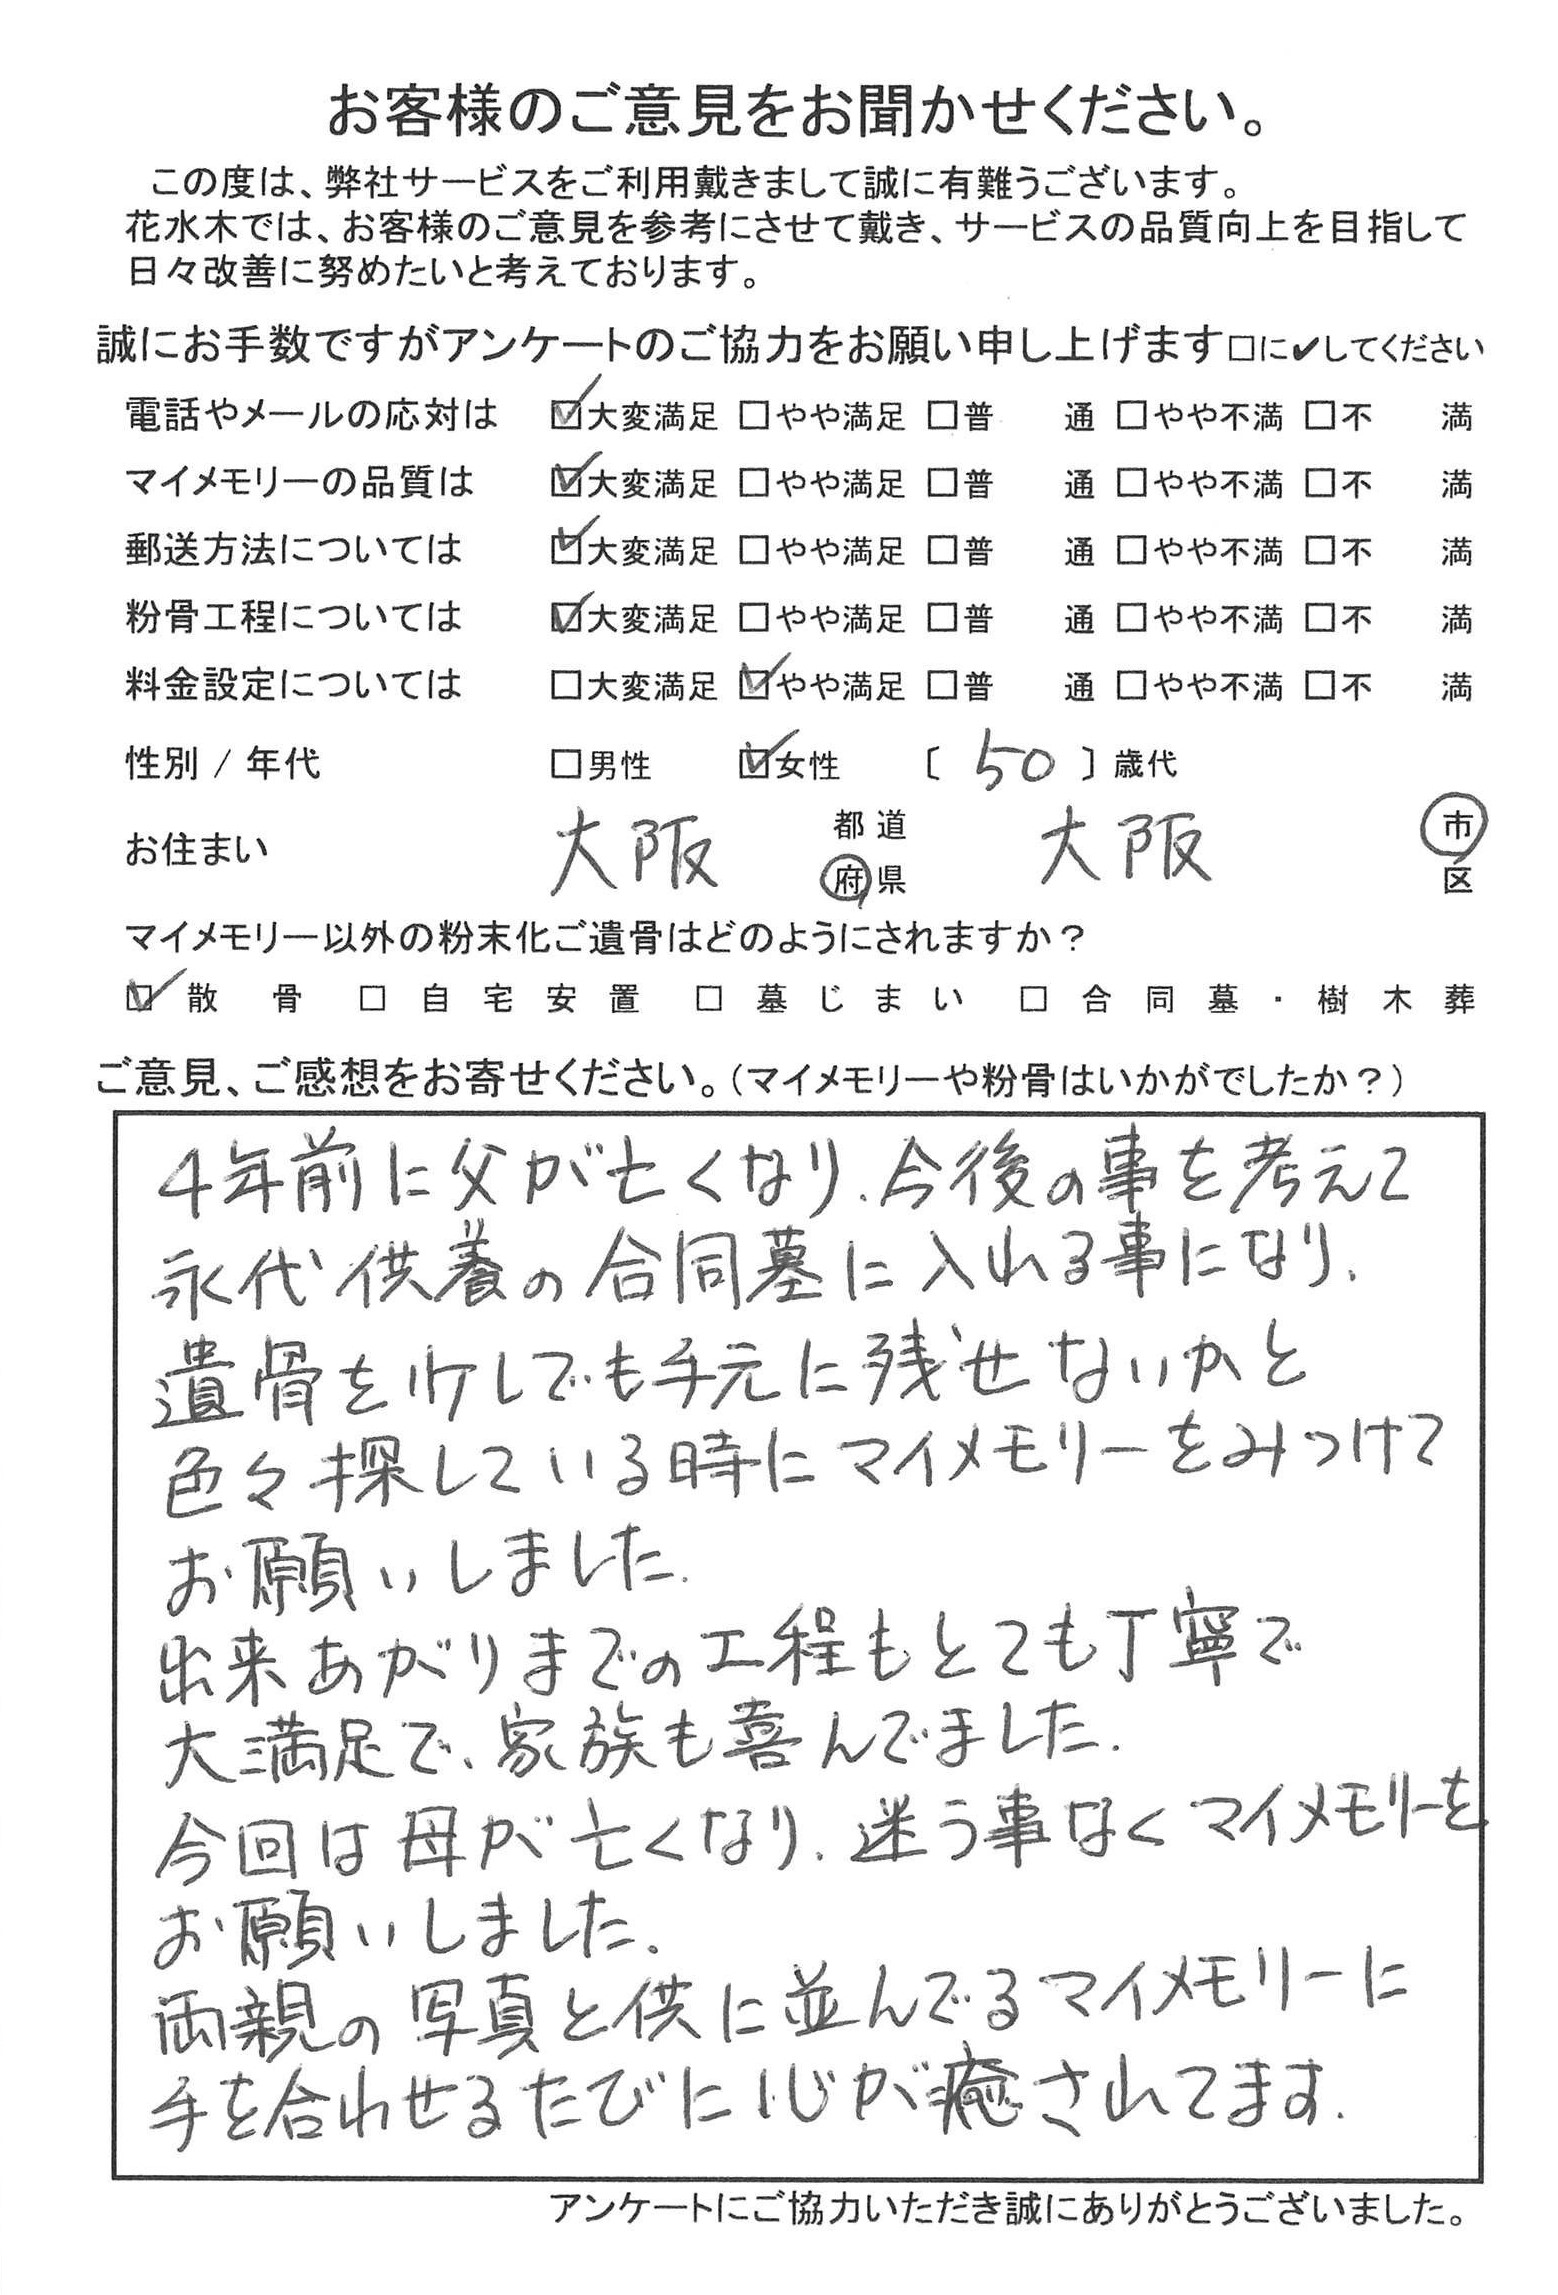 お客様のご意見をお聞かせください。
この度は、弊社サービスをご利用戴きまして誠に有難うございます。
花水木では、お客様のご意見を参考にさせて戴き、サービスの品質向上を目指して
日々改善に努めたいと考えております。
誠にお手数ですがアンケートのご協力をお願い申し上げます□に✔してください
電話やメールの応対は ☑大変満足 □やや満足 □普 通 □やや不満 □不 満
マイメモリーの品質は ☑大変満足 □やや満足 □普 通 □やや不満 □不 満
郵送方法については ☑大変満足 □やや満足 □普 通 □やや不満 □不 満
粉骨工程については ☑大変満足 □やや満足 □普 通 □やや不満 □不 満
料金設定については □大変満足 ☑やや満足 □普 通 □やや不満 □不 満
性別 / 年代 □男性 ☑女性 〔 50 〕歳代
お住まい 大阪 都道府県 大阪 市区
マイメモリー以外の粉末化ご遺骨はどのようにされますか？
☑散骨 □自宅安置 □墓じまい □合同墓・樹木葬
ご意見、ご感想をお寄せください。（マイメモリーや粉骨はいかがでしたか？）
4年前に父が亡くなり、今後の事を考えて
永代供養の合同墓に入れる事になり、
遺骨を少しでも手元に残せないかと
色々探している時にマイメモリーをみつけて
お願いしました。
出来あがりまでの工程もとても丁寧で
大満足で、家族も喜んでました。
今回は母が亡くなり、迷う事なくマイメモリーを
お願いしました。
両親の写真と供に並んでるマイメモリーに
手を合わせるたびに心が癒されてます。
アンケートにご協力いただき誠にありがとうございました。